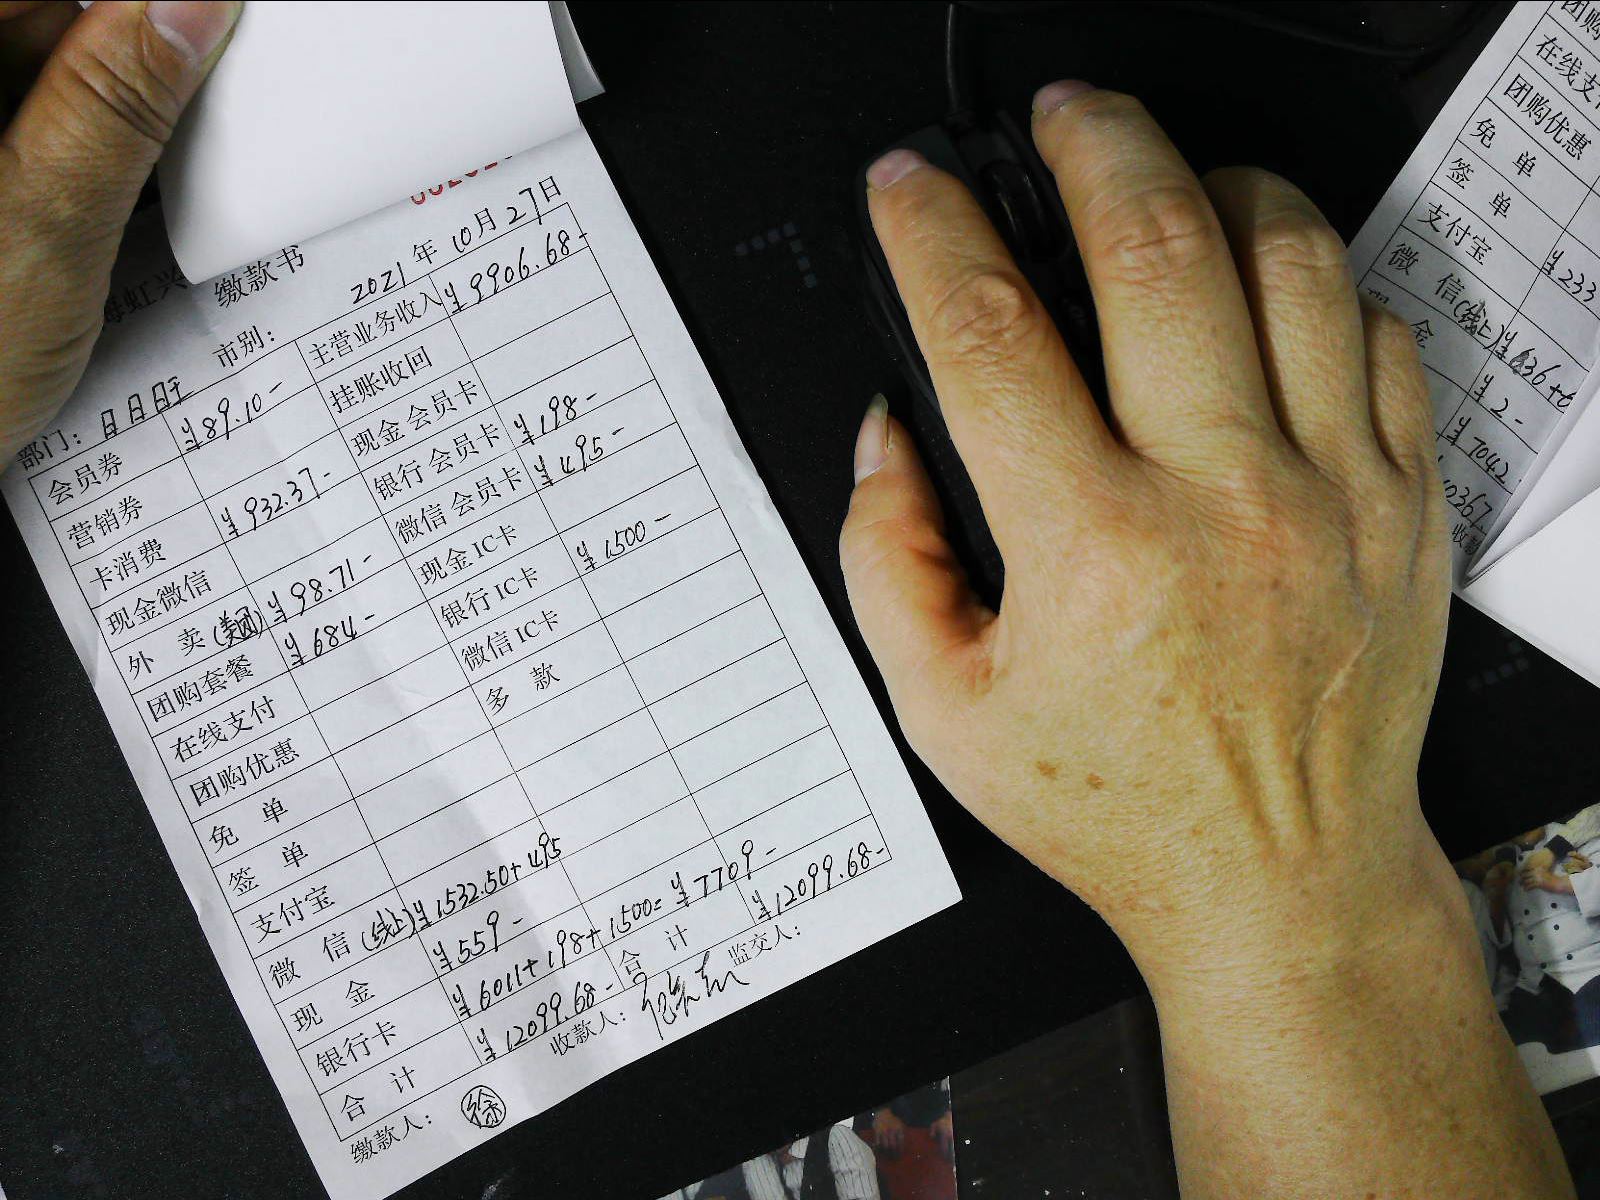 海虹兴
缴款书
2021年10月27日
部门：日日日旺 市别：
会员券 ¥89.10- 主营业务收入 ¥9906.68-
营销券 挂账收回
卡消费 ¥932.37- 现金会员卡
现金微信 银行会员卡 ¥198-
外卖(美团) ¥98.71- 微信会员卡 ¥495-
团购套餐 ¥684- 现金IC卡
在线支付 银行IC卡 ¥1500-
团购优惠 微信IC卡
免单 多款
签单
支付宝
微信(线上) ¥1532.50+495
现金 ¥559-
银行卡 ¥6011+198+1500=¥7709-
合计 ¥12099.68- 合计 ¥12099.68-
缴款人：徐 收款人： 监交人：
团购
在线支
团购优惠
免单
签单
支付宝 ¥233
微信(线上) ¥636+6
金 ¥2-
¥7042
10367
收款